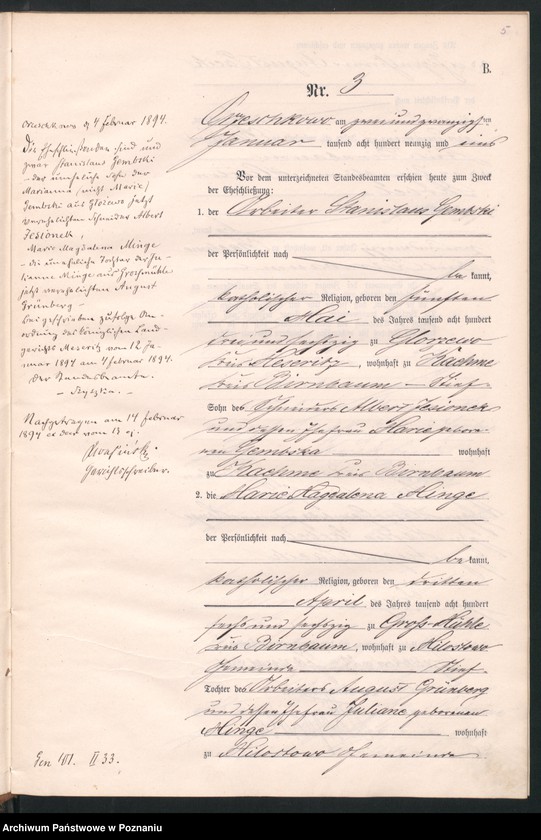 5
B.
Nr. 3
Orzeschkowo am zweiundzwanzigsten
Januar tausend acht hundert neunzig und eins
Vor dem unterzeichneten Standesbeamten erschienen heute zum Zweck
der Eheschließung:
1. der Arbeiter Stanislaus Gembski
der Persönlichkeit nach
be kannt,
katholischer Religion, geboren den fünften
Mai des Jahres tausend acht hundert
drei und sechszig zu Glozewo
Kreis Meseritz, wohnhaft zu Kaehme
Kreis Birnbaum – Stief
Sohn des Schneiders Albert Jesionek
und dessen Ehefrau Marie gebore
nen Gembska wohnhaft
zu Kaehme Kreis Birnbaum
2. die Marie Magdalena Minge
der Persönlichkeit nach
be kannt,
katholischer Religion, geboren den dritten
April des Jahres tausend acht hundert
sechs und sechszig zu Groß Mühle
Kreis Birnbaum, wohnhaft zu Milostowo
Gemeinde Stief
Tochter des Arbeiters August Grünberg
und dessen Ehefrau Juliane geborenen
Minge wohnhaft
zu Milostowo Gemeinde.
Orzeschkowo, d 4 Februar 1894.
Die Eheschließenden sind und
zwar Stanislaus Gembski
– der uneheliche Sohn der
Marianna (nicht Marie)
Gembski aus Glozewo jetzt
verehelichten Schneider Albert
Jesionek,
Marie Magdalena Minge
– die uneheliche Tochter der Ju-
lianne Minge aus Grossmühle
jetzt verehelichten August
Grünberg –
Beigeschrieben zufolge An-
ordnung des Königlichen Land-
gerichts Meseritz vom 12 Ja-
nuar 1894 am 4 Februar 1894.
Der Standesbeamte.
Nachgetragen am 14 Februar
1894
Gerichtsschreiber.
Gen 101. II 33.
Archiwum Państwowe w Poznaniu